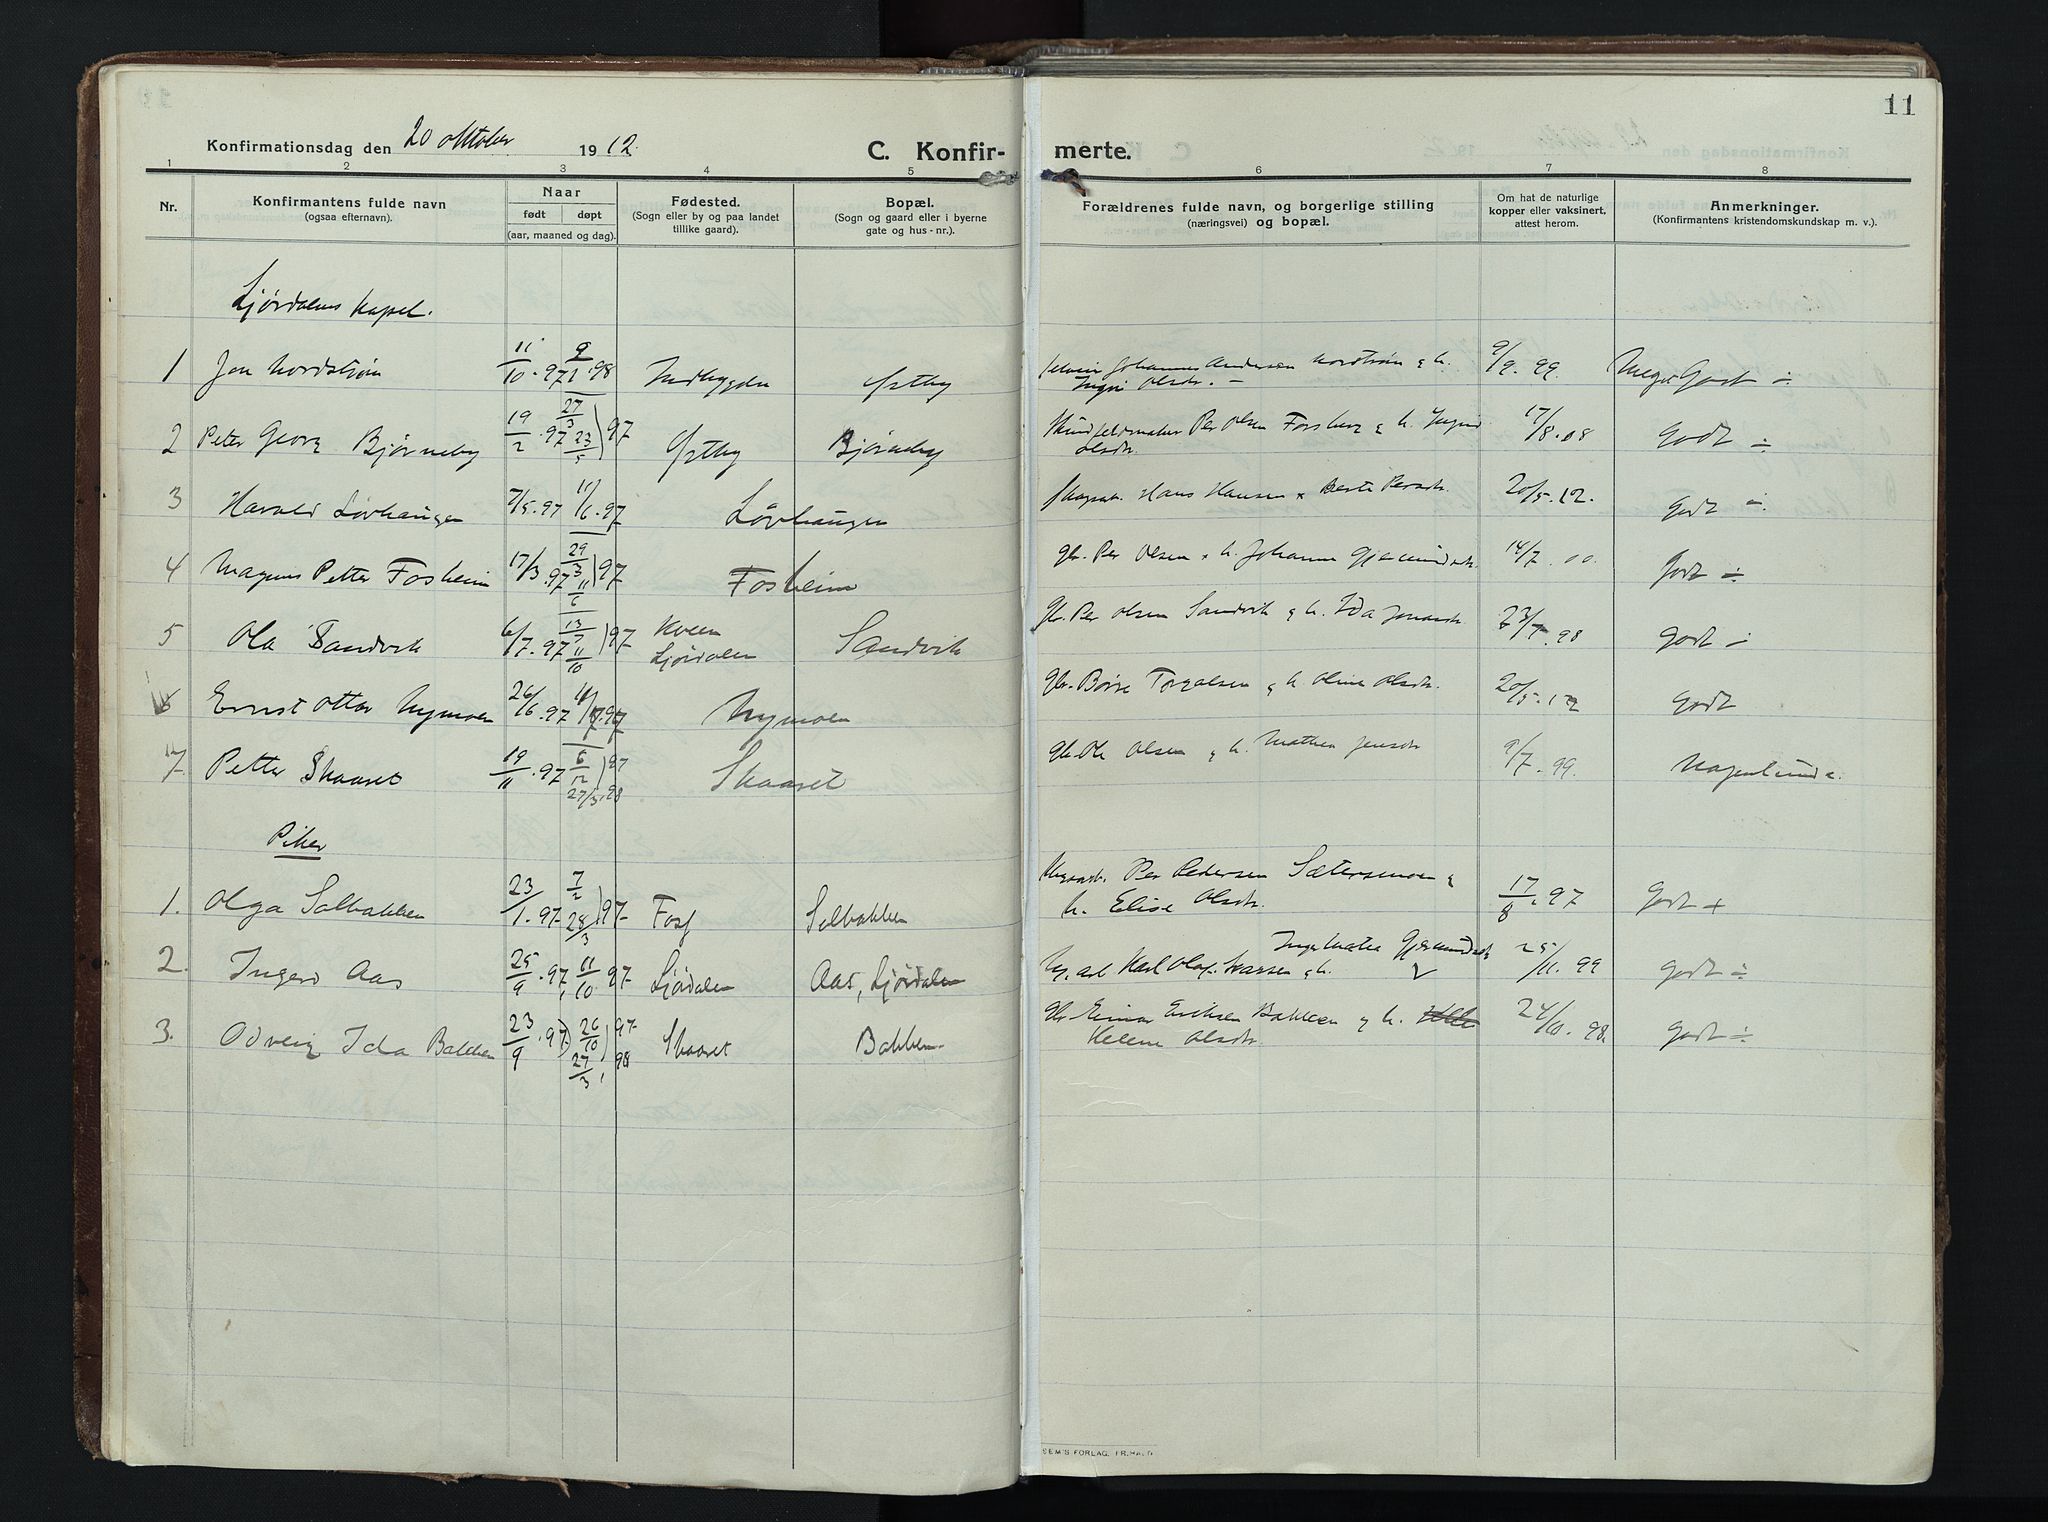 11
Konfirmationsdag den 20 oktober 1912.
C. Konfir-merte.
1 2 3 4 5 6 7 8
Nr. Konfirmantens fulde navn (ogsaa efternavn). Naar født døpt (aar, maaned og dag). Fødested. (Sogn eller by og paa landet tillike gaard). Bopæl. (Sogn og gaard eller i byerne gate og hus-nr.). Forældrenes fulde navn, og borgerlige stilling (næringsvei) og bopæl. Om hat de naturlige kopper eller vaksinert, attest herom. Anmerkninger. (Konfirmantens kristendomskundskap m. v.).
Ljørdalens Kapel.
1 Jon Nordstrøm 11/10.97 9/1.98 Indbygden Østby Johannes Andersen Nordstrøm & h. 9/9.99. Meget Godt ÷
Olsdtr. –
2 Peter Georg Bjørneby 19/2.97 27/3 23/5)97 Østby Bjørneby Per Olsen Forsberg & h. Ingrid 17/8.08 Godt ÷
Olsdtr.
3 Harald Løvhaugen 7/5.97 11/6.97 Løvhaugen Hans Hansen & Berte Persdtr. 20/5.12. Godt ÷
4 Magnus Petter Fosheim 17/3.97 29/3 11/6)97 Fosheim gbr. Per Olsen & h. Johanne Gjermundsdtr. 14/7.00. Godt ÷
5 Ola Sandvik 6/7.97 13/7 11/10)97 Kveen Ljørdalen Sandvik Gbr. Per Olsen Sandvik & h. Ida Jonasdtr. 23/7.98 Godt ÷
6 Ernst Ottar Nymoen 26/6.97 Nymoen gbr. Børre Torgalsen & h. Oline Olsdtr. 20/5.12 Godt
7. Petter Skaaret 19/11.97 6/12)97 27/3.98 Skaaret gbr. Ole Olsen & h. Mathea Jensdtr. 9/7.99. Nogenlunde.
Piker
1. Olga Solbakken 23/1.97 7/2 28/3)97 Foss Solbakken Per Pedersen Sætersmoen & 17/8.97 Godt +
h. Elise Olsdtr.
Inger Mathea Gjermundsdtr.
2. Ingerd Aas 25/9.97 11/10 97 Ljørdalen Aas, Ljørdalen Karl Olaf Larssen & h. V 25/11.99 Godt ÷
3. Odveig Ida Bakken 23/9.97 26/10)97 27/3 98 Skaaret Bakken. Gbr Einar Eriksen Bakken & h. 24/10.98. Godt ÷
Helene Olsdtr.
SEM'S FORLAG, FR.HALD